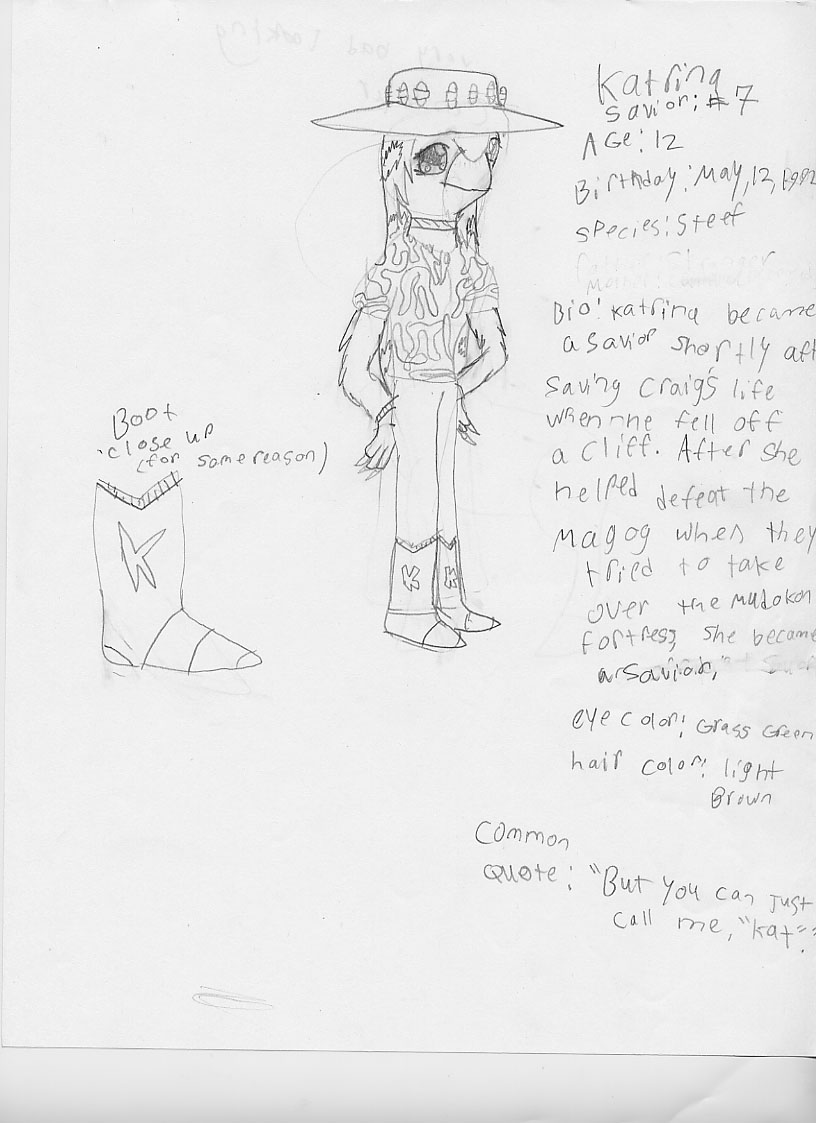 Katrina
Savior: #7
Age: 12
Birthday: May, 12, 1992
Species: Steef
Bio: Katrina became
a savior shortly aft
saving Craig's life
when he fell off
a cliff. After she
helped defeat the
magog when they
tried to take
over the mudokon
fortress, she became
a savior."
eye color: Grass Green
hair color: light
Brown
Common
Quote: "But you can just
call me, "Kat".
Boot
close up
(for some reason)
K
K
K